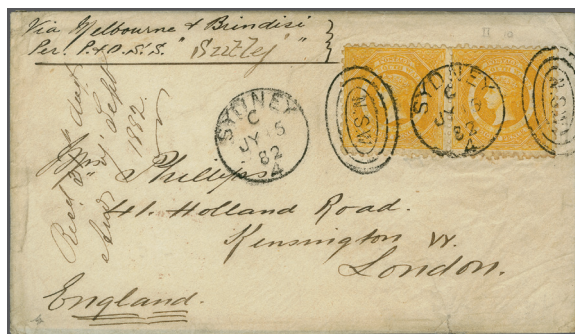 Via Melbourne & Brindisi
Per. P. & O. S.S.
SYDNEY
C
JY 15
82
4
NSW
SYDNEY
C
82
4
NSW
Sept
1882
Phillips
41. Holland Road.
Kensington W.
London.
England.